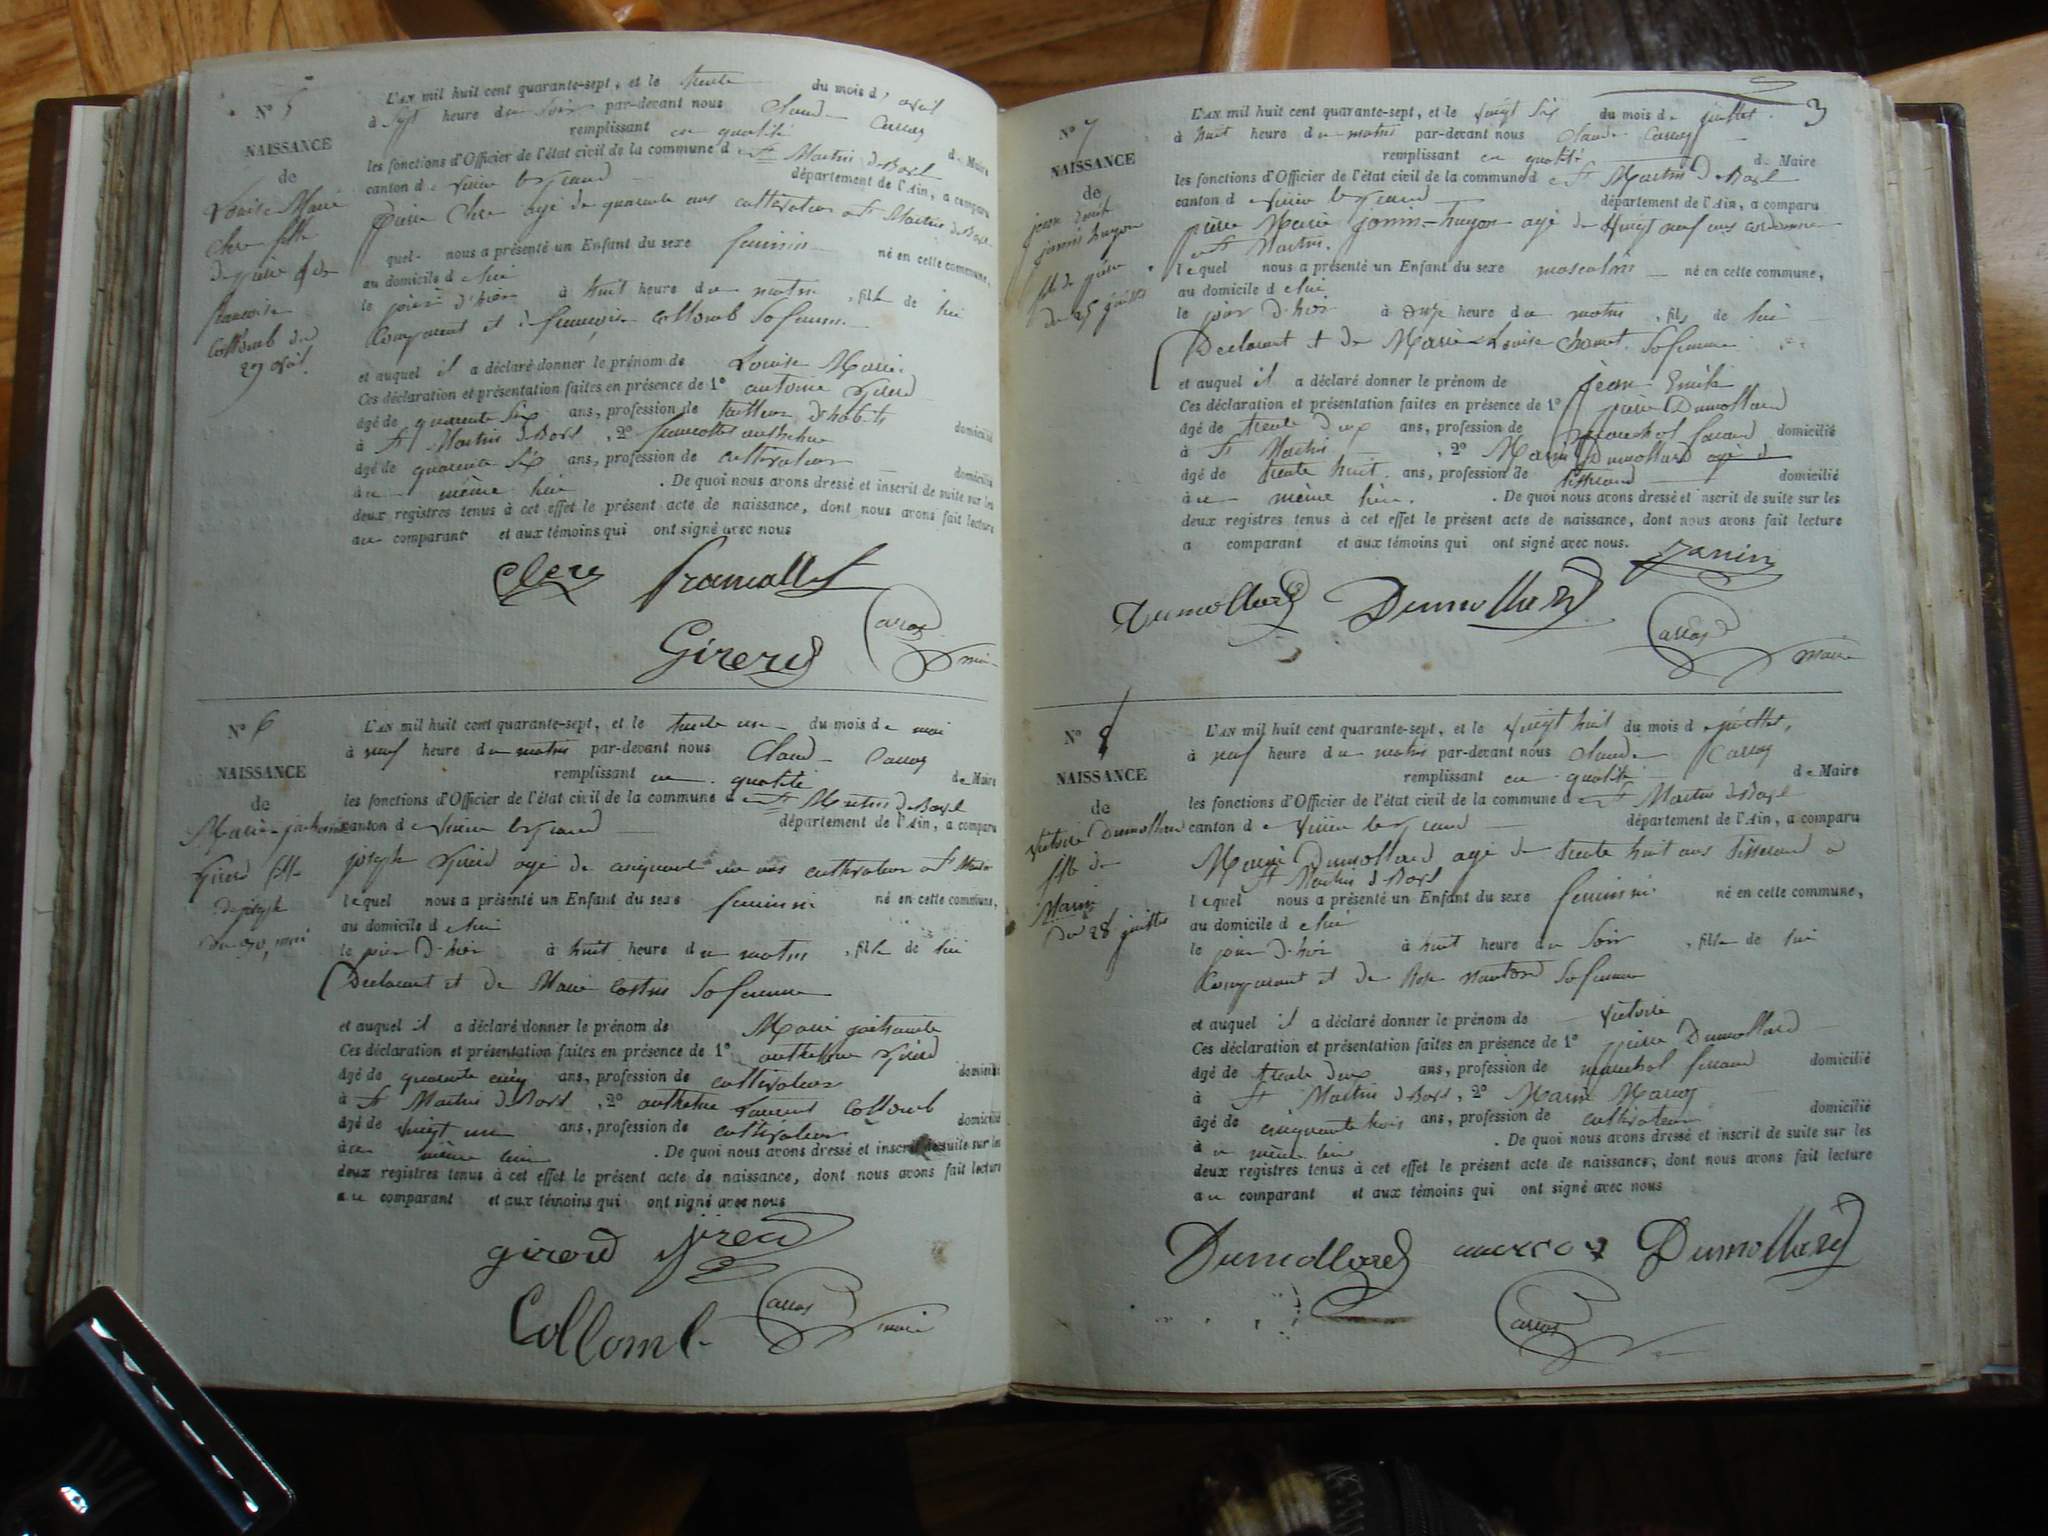 N° 5
NAISSANCE
de
Louise Marie
fille
de pierre & de
francoise
Collomb du
29 avril.
L'AN mil huit cent quarante-sept, et le trente du mois d' avril
à sept heure du soir par-devant nous Claude Carroz
remplissant en qualité de Maire
les fonctions d'Officier de l'état civil de la commune de St Martin de Bavel
canton de virieu le grand département de l'Ain, a comparu
pierre agé de quarante ans cultivateur a St Martin de Bavel
quel nous a présenté un Enfant du sexe feminin né en cette commune,
au domicile de lui
le jour d'hier à huit heure du matin , fille de lui
Comparant et de françoise Collomb Sa femme
et auquel il a déclaré donner le prénom de Louise Marie
Ces déclaration et présentation faites en présence de 1° antoine Girerd
âgé de quarante six ans, profession de tailleur d'habits domicilié
à St Martin de Bavel , 2° francollet anthelme
âgé de quarante six ans, profession de cultivateur domicilié
au même lieu . De quoi nous avons dressé et inscrit de suite sur les
deux registres tenus à cet effet le présent acte de naissance, dont nous avons fait lecture
au comparant et aux témoins qui ont signé avec nous
francollet
Girerd Carroz maire
N° 6
NAISSANCE
de
Marie
Girerd fille
de joseph
du 30 mai
L'AN mil huit cent quarante-sept, et le trente un du mois de mai
à neuf heure du matin par-devant nous Claude Carroz
remplissant en qualité de Maire
les fonctions d'Officier de l'état civil de la commune de St Martin de Bavel
canton de virieu le grand département de l'Ain, a comparu
joseph Girerd agé de cinquante un ans cultivateur a St Martin
lequel nous a présenté un Enfant du sexe feminin né en cette commune,
au domicile de lui
le jour d'hier à huit heure du matin , fille de lui
Declarant et de Marie Costin Sa femme
et auquel il a déclaré donner le prénom de Marie
Ces déclaration et présentation faites en présence de 1° anthelme Girerd
âgé de quarante cinq ans, profession de cultivateur domicilié
à St Martin de Bavel , 2° anthelme Laurent Collomb
âgé de vingt un ans, profession de cultivateur domicilié
au même lieu . De quoi nous avons dressé et inscrit de suite sur les
deux registres tenus à cet effet le présent acte de naissance, dont nous avons fait lecture
au comparant et aux témoins qui ont signé avec nous
girerd girerd
Collomb Carroz maire
3
N° 7
NAISSANCE
de
jean Emile
janin hugon
fils de pierre
du 25 juillet
L'AN mil huit cent quarante-sept, et le vingt six du mois de juillet
à huit heure du matin par-devant nous Claude Carroz
remplissant en qualité de Maire
les fonctions d'Officier de l'état civil de la commune de St Martin de Bavel
canton de virieu le grand département de l'Ain, a comparu
pierre Marie janin-hugon agé de vingt neuf ans cordonnier
a St Martin.
lequel nous a présenté un Enfant du sexe masculin né en cette commune,
au domicile de lui
le jour d'hier à onze heure du matin , fils de lui
Declarant et de Marie Louise Sa femme
et auquel il a déclaré donner le prénom de jean Emile
Ces déclaration et présentation faites en présence de 1° pierre Dumollard
âgé de trente deux ans, profession de marechal ferrand domicilié
à St Martin , 2° Marin Dumollard agé d
âgé de trente huit ans, profession de tisserand domicilié
au même lieu. . De quoi nous avons dressé et inscrit de suite sur les
deux registres tenus à cet effet le présent acte de naissance, dont nous avons fait lecture
a comparant et aux témoins qui ont signé avec nous. janin
Dumollard Dumollard
Carroz maire
N° 8
NAISSANCE
de
victoire Dumollard
fille de
Marin
du 28 juillet
L'AN mil huit cent quarante-sept, et le vingt huit du mois de juillet,
à neuf heure du matin par-devant nous Claude Carroz
remplissant en qualité de Maire
les fonctions d'Officier de l'état civil de la commune de St Martin de Bavel
canton de virieu le grand département de l'Ain, a comparu
Marin Dumollard agé de trente huit ans tisserand a
St Martin de Bavel
lequel nous a présenté un Enfant du sexe feminin né en cette commune,
au domicile de lui
le jour d'hier à huit heure du Soir , fille de lui
Comparant et de Rose Sa femme
et auquel il a déclaré donner le prénom de victoire
Ces déclaration et présentation faites en présence de 1° pierre Dumollard
âgé de trente deux ans, profession de marechal ferrand domicilié
à St Martin de Bavel , 2° Marin Marcoz
âgé de cinquante trois ans, profession de cultivateur domicilié
au même lieu . De quoi nous avons dressé et inscrit de suite sur les
deux registres tenus à cet effet le présent acte de naissance, dont nous avons fait lecture
au comparant et aux témoins qui ont signé avec nous
Dumollard marcoz Dumollard
Carroz